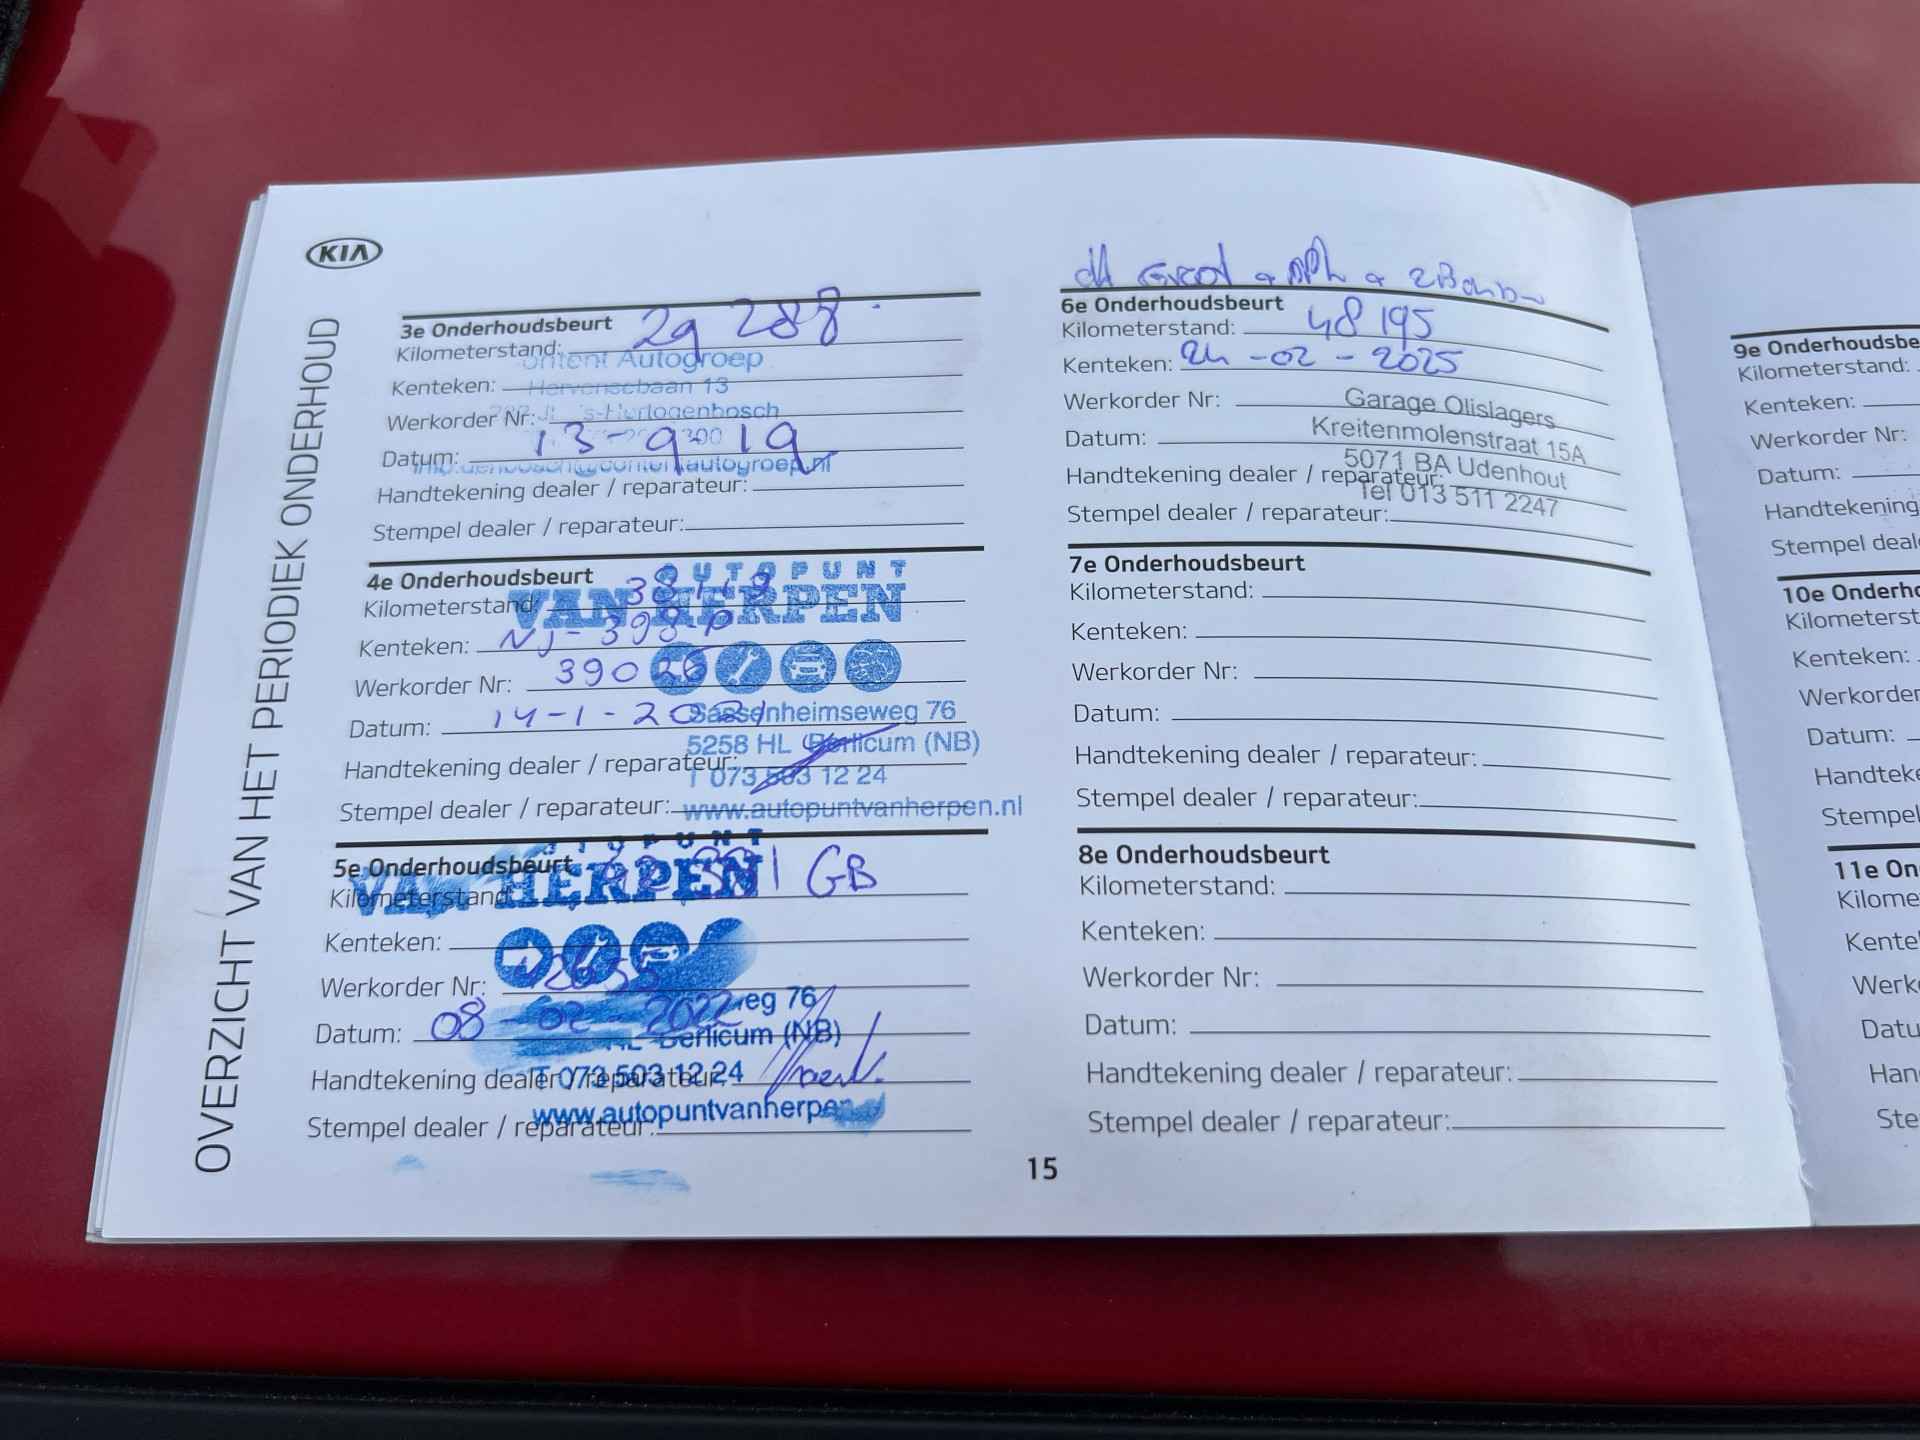 KIA
OVERZICHT VAN HET PERIODIEK ONDERHOUD
3e Onderhoudsbeurt
Kilometerstand: 29 288
Autogroep
Kenteken:
13
Werkorder Nr:
s-Hertogenbosch
Datum: 13-9-19
autogroep.nl
Handtekening dealer / reparateur:
Stempel dealer / reparateur:
4e Onderhoudsbeurt
AUTOPUNT
VAN HERPEN
Kilometerstand:
Kenteken: NJ-398-P
Werkorder Nr: 39026
Datum: 14-1-2021
Sassenheimseweg 76
5258 HL Berlicum (NB)
Handtekening dealer / reparateur:
T 073 503 12 24
Stempel dealer / reparateur:
www.autopuntvanherpen.nl
5e Onderhoudsbeurt
VAN HERPEN
GB
Kilometerstand:
Kenteken:
Werkorder Nr:
eg 76
Datum: 08-02-2022
Berlicum (NB)
Handtekening dealer / reparateur:
T 073 503 12 24
www.autopuntvanherpen
Stempel dealer / reparateur:
6e Onderhoudsbeurt
Kilometerstand: 48 195
Kenteken: 24-02-2025
Werkorder Nr:
Garage Olislagers
Kreitenmolenstraat 15A
Datum:
5071 BA Udenhout
Handtekening dealer / reparateur:
Tel 013 511 2247
Stempel dealer / reparateur:
7e Onderhoudsbeurt
Kilometerstand:
Kenteken:
Werkorder Nr:
Datum:
Handtekening dealer / reparateur:
Stempel dealer / reparateur:
8e Onderhoudsbeurt
Kilometerstand:
Kenteken:
Werkorder Nr:
Datum:
Handtekening dealer / reparateur:
Stempel dealer / reparateur:
15
9e Onderhoudsbe
Kilometerstand:
Kenteken:
Werkorder Nr:
Datum:
Handtekening
Stempel deal
10e Onderho
Kilometerst
Kenteken:
Werkorder
Datum:
Handteke
Stempel
11e On
Kilome
Kente
Werk
Datu
Han
Ste